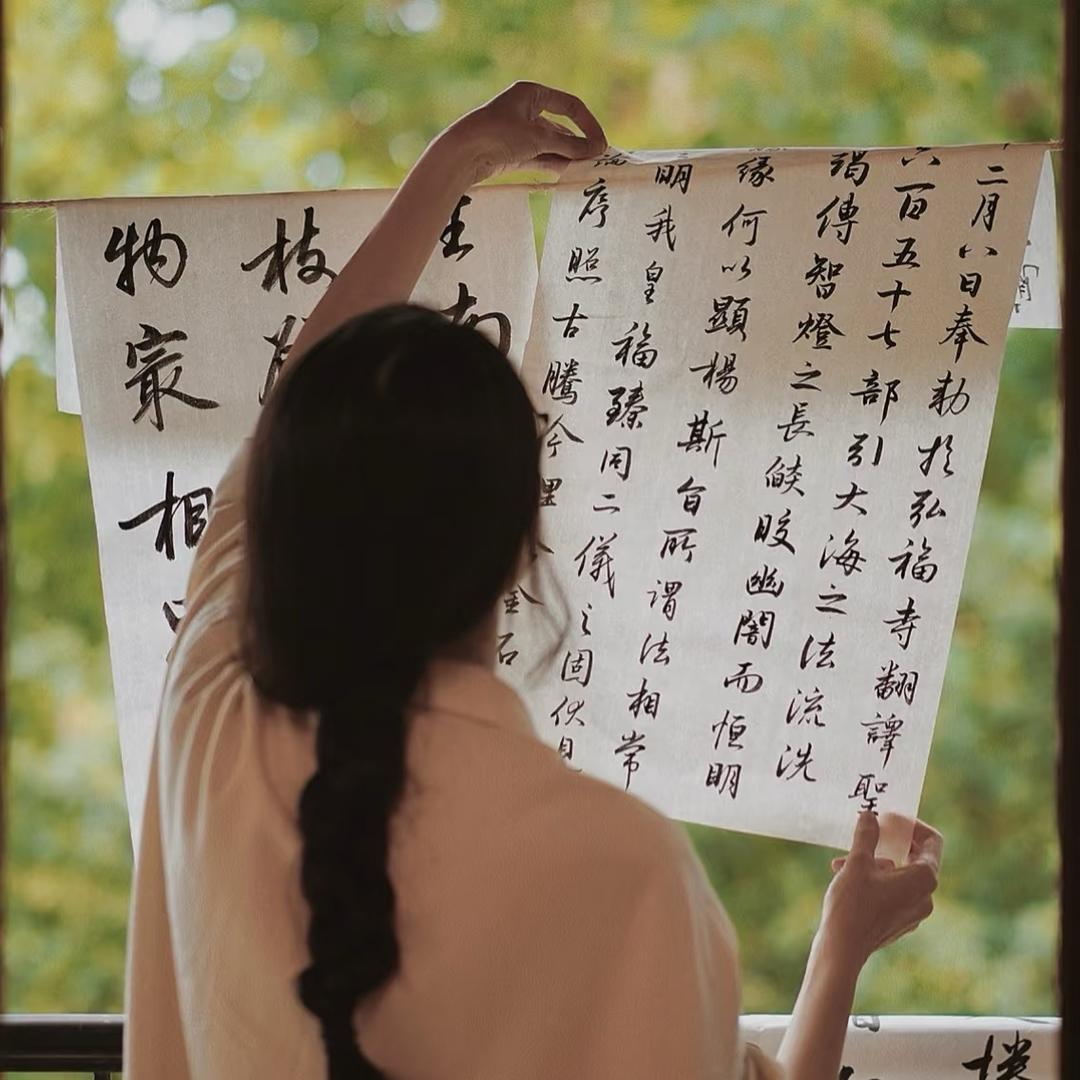 二月八日奉勅於弘福寺翻譯聖
六百五十七部引大海之法流洗
竭傳智燈之長燄皎幽闇而恒明
緣何以顯揚斯旨所謂法相常
明我皇福臻同二儀之固伏見
序照古騰今理含金石
生南
枝發
物冣相